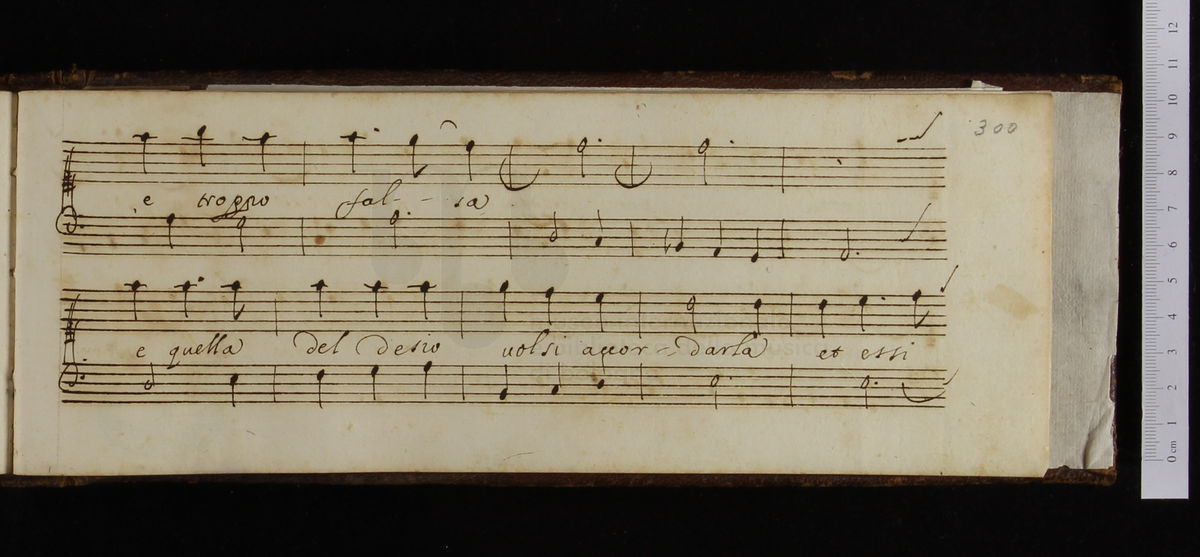 300
e troppo fal - sa
e quella del desio volsi accor - darla et essi
0 cm 1 2 3 4 5 6 7 8 9 10 11 12